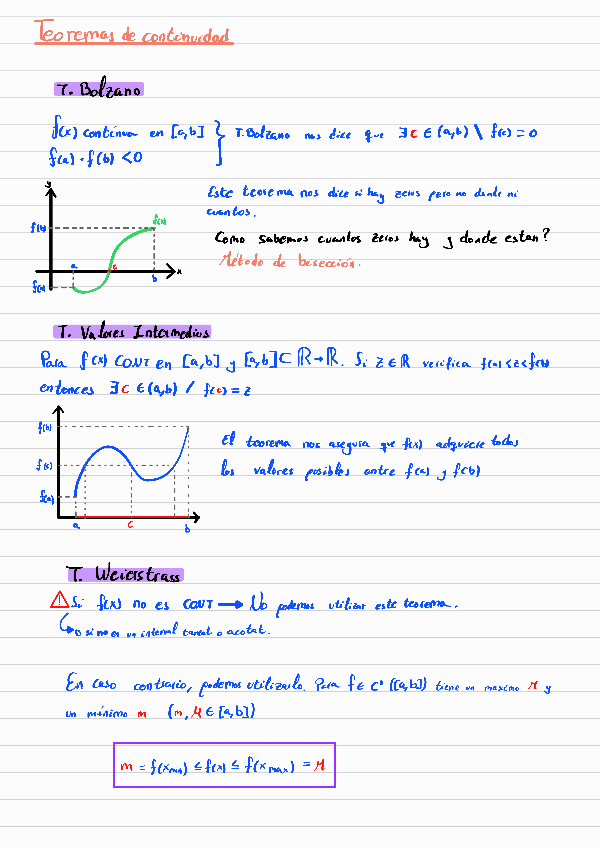 Teoremas de continuidad
T. Bolzano
f(x) continua en [a,b] } T. Bolzano nos dice que ∃ c ∈ (a,b) \ f(c) = 0
f(a) · f(b) < 0
Este teorema nos dice si hay zeros pero no donde ni
cuantos.
Como sabemos cuantos zeros hay y donde estan?
Método de bisección.
y
f(b)
f(x)
a
c
b
x
f(a)
T. Valores Intermedios
Para f(x) CONT en [a,b] y [a,b] ⊂ ℝ → ℝ. Si z ∈ ℝ verifica f(a) < z < f(b)
entonces ∃ c ∈ (a,b) / f(c) = z
f(b)
f(c)
f(a)
a
c
b
El teorema nos asegura que f(x) adquiere todos
los valores posibles entre f(a) y f(b)
T. Weierstrass
⚠ Si f(x) no es CONT → No podemos utilizar este teorema.
↳ o si no es un interval tancat o acotat.
En caso contrario, podemos utilizarlo. Para f ∈ C⁰ ([a,b]) tiene un maximo M y
un mínimo m (m, M ∈ [a,b])
m = f(xmin) ≤ f(x) ≤ f(xmax) = M